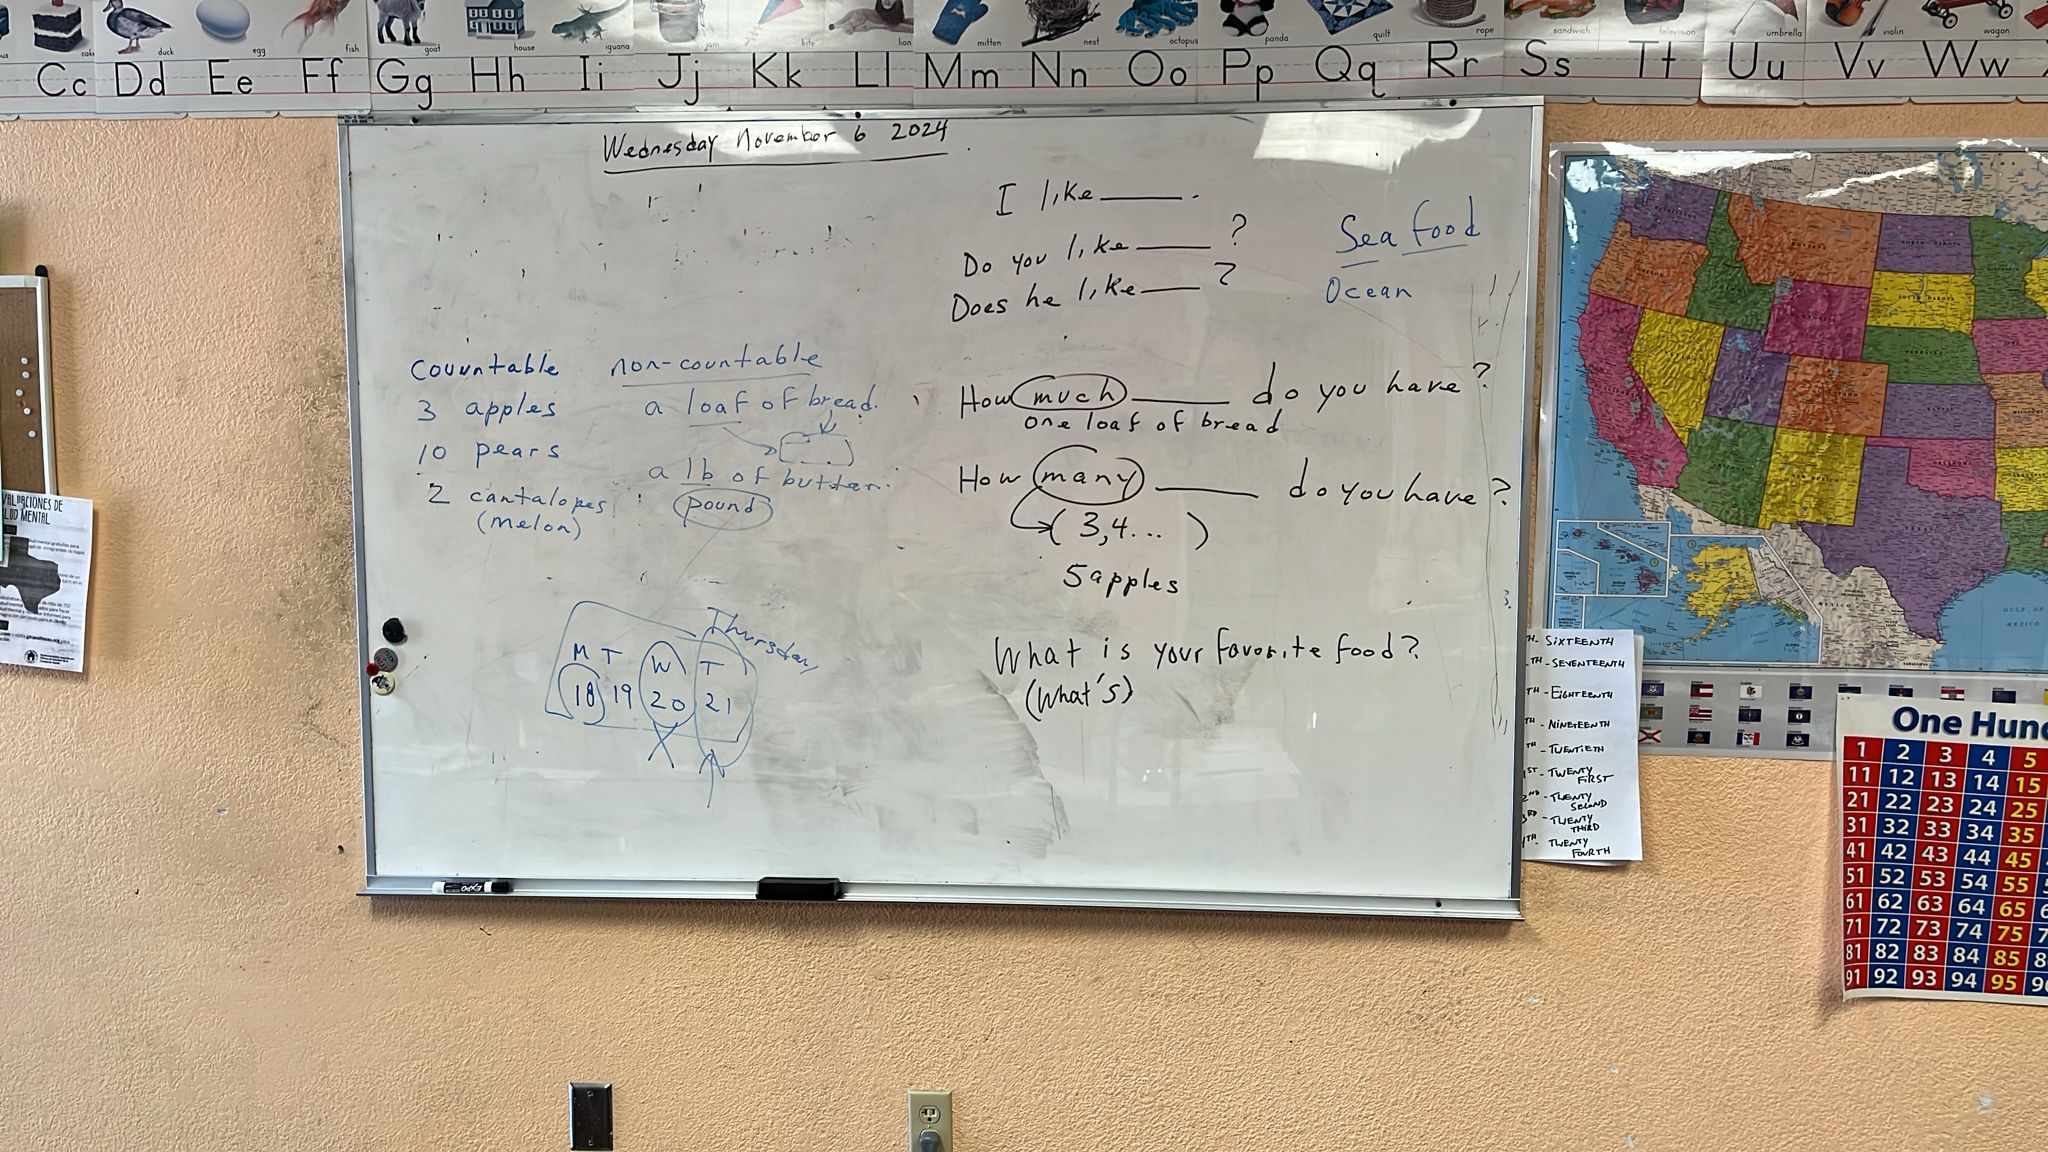 cake duck egg fish goat house iguana jam kite lion mitten nest octopus panda quilt rope sandwich television umbrella violin wagon
Cc Dd Ee Ff Gg Hh Ii Jj Kk Ll Mm Nn Oo Pp Qq Rr Ss Tt Uu Vv Ww
Wednesday November 6 2024
I like ______.
Do you like ______ ?
Does he like ______ ?
Sea food
Ocean
countable
3 apples
10 pears
2 cantalopes
(melon)
non-countable
a loaf of bread.
a lb of butter.
pound
How much ______ do you have?
one loaf of bread
How many ______ do you have?
(3,4... )
5 apples
Thursday
M T W T
18 19 20 21
What is your favorite food?
(What's)
EXPO
ALUACIONES DE
LUD MENTAL
OREGON
NORTH DAKOTA
SOUTH DAKOTA
KANSAS
OKLAHOMA
NEW MEXICO
TEXAS
GULF OF
MEXICO
TH- SIXTEENTH
TH- SEVENTEENTH
TH- EIGHTEENTH
TH- NINETEENTH
TH- TWENTIETH
1ST- TWENTY
FIRST
2ND- TWENTY
SECOND
3RD- TWENTY
THIRD
4TH- TWENTY
FOURTH
One Hun
1 2 3 4 5
11 12 13 14 15
21 22 23 24 25
31 32 33 34 35
41 42 43 44 45
51 52 53 54 55
61 62 63 64 65
71 72 73 74 75
81 82 83 84 85
91 92 93 94 95